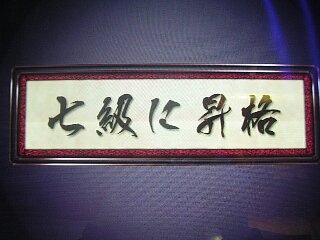 七級に昇格